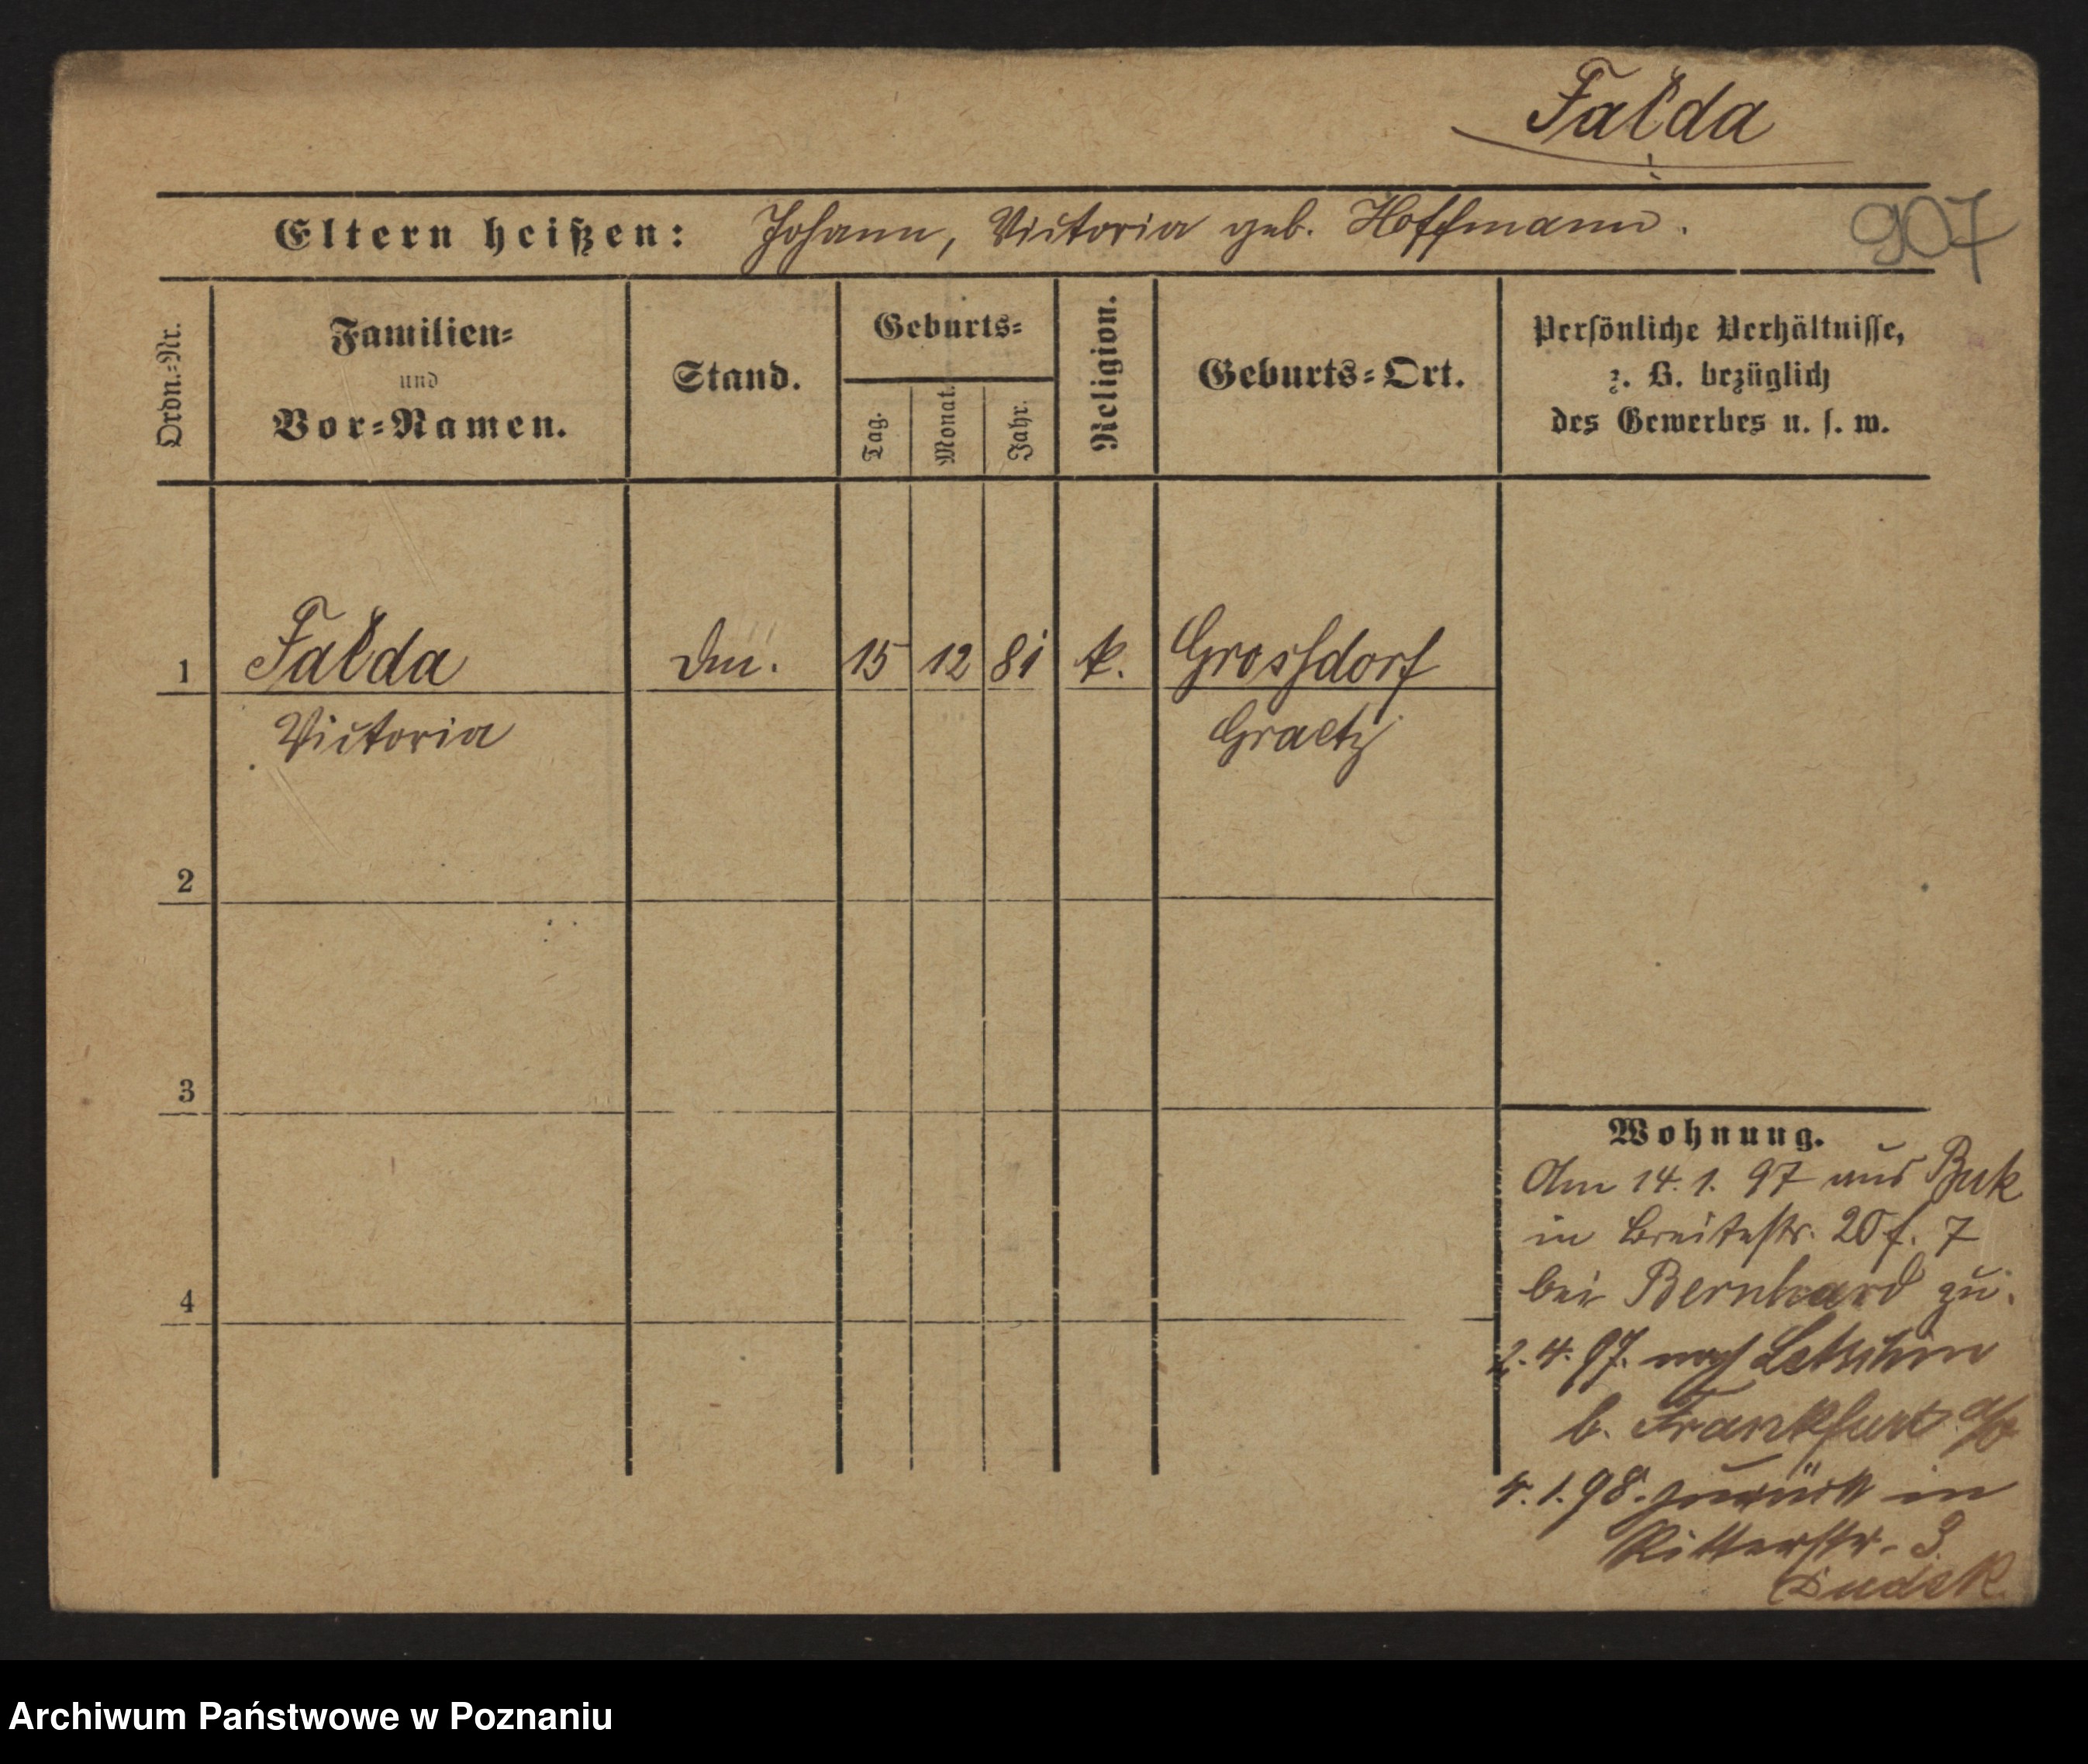 Fałda
Eltern heißen: Johann, Victoria geb. Hoffmann.
907
Ordn.-Nr.
Familien-
und
Vor-Namen.
Stand.
Geburts-
Tag.
Monat.
Jahr.
Religion.
Geburts-Ort.
Persönliche Verhältnisse,
z. B. bezüglich
des Gewerbes u. s. w.
1 Fałda 15 12 81 k. Grossdorf
Victoria Graetz
2
3
4
Wohnung.
Am 14.1.97 aus Buk
in Breitestr. 20 f. 7
bei Bernhard zu.
2.4.97. nach Letschin
b. Frankfurt a/O
4.1.98. zurück in
Ritterstr. 3
Dudek
Archiwum Państwowe w Poznaniu